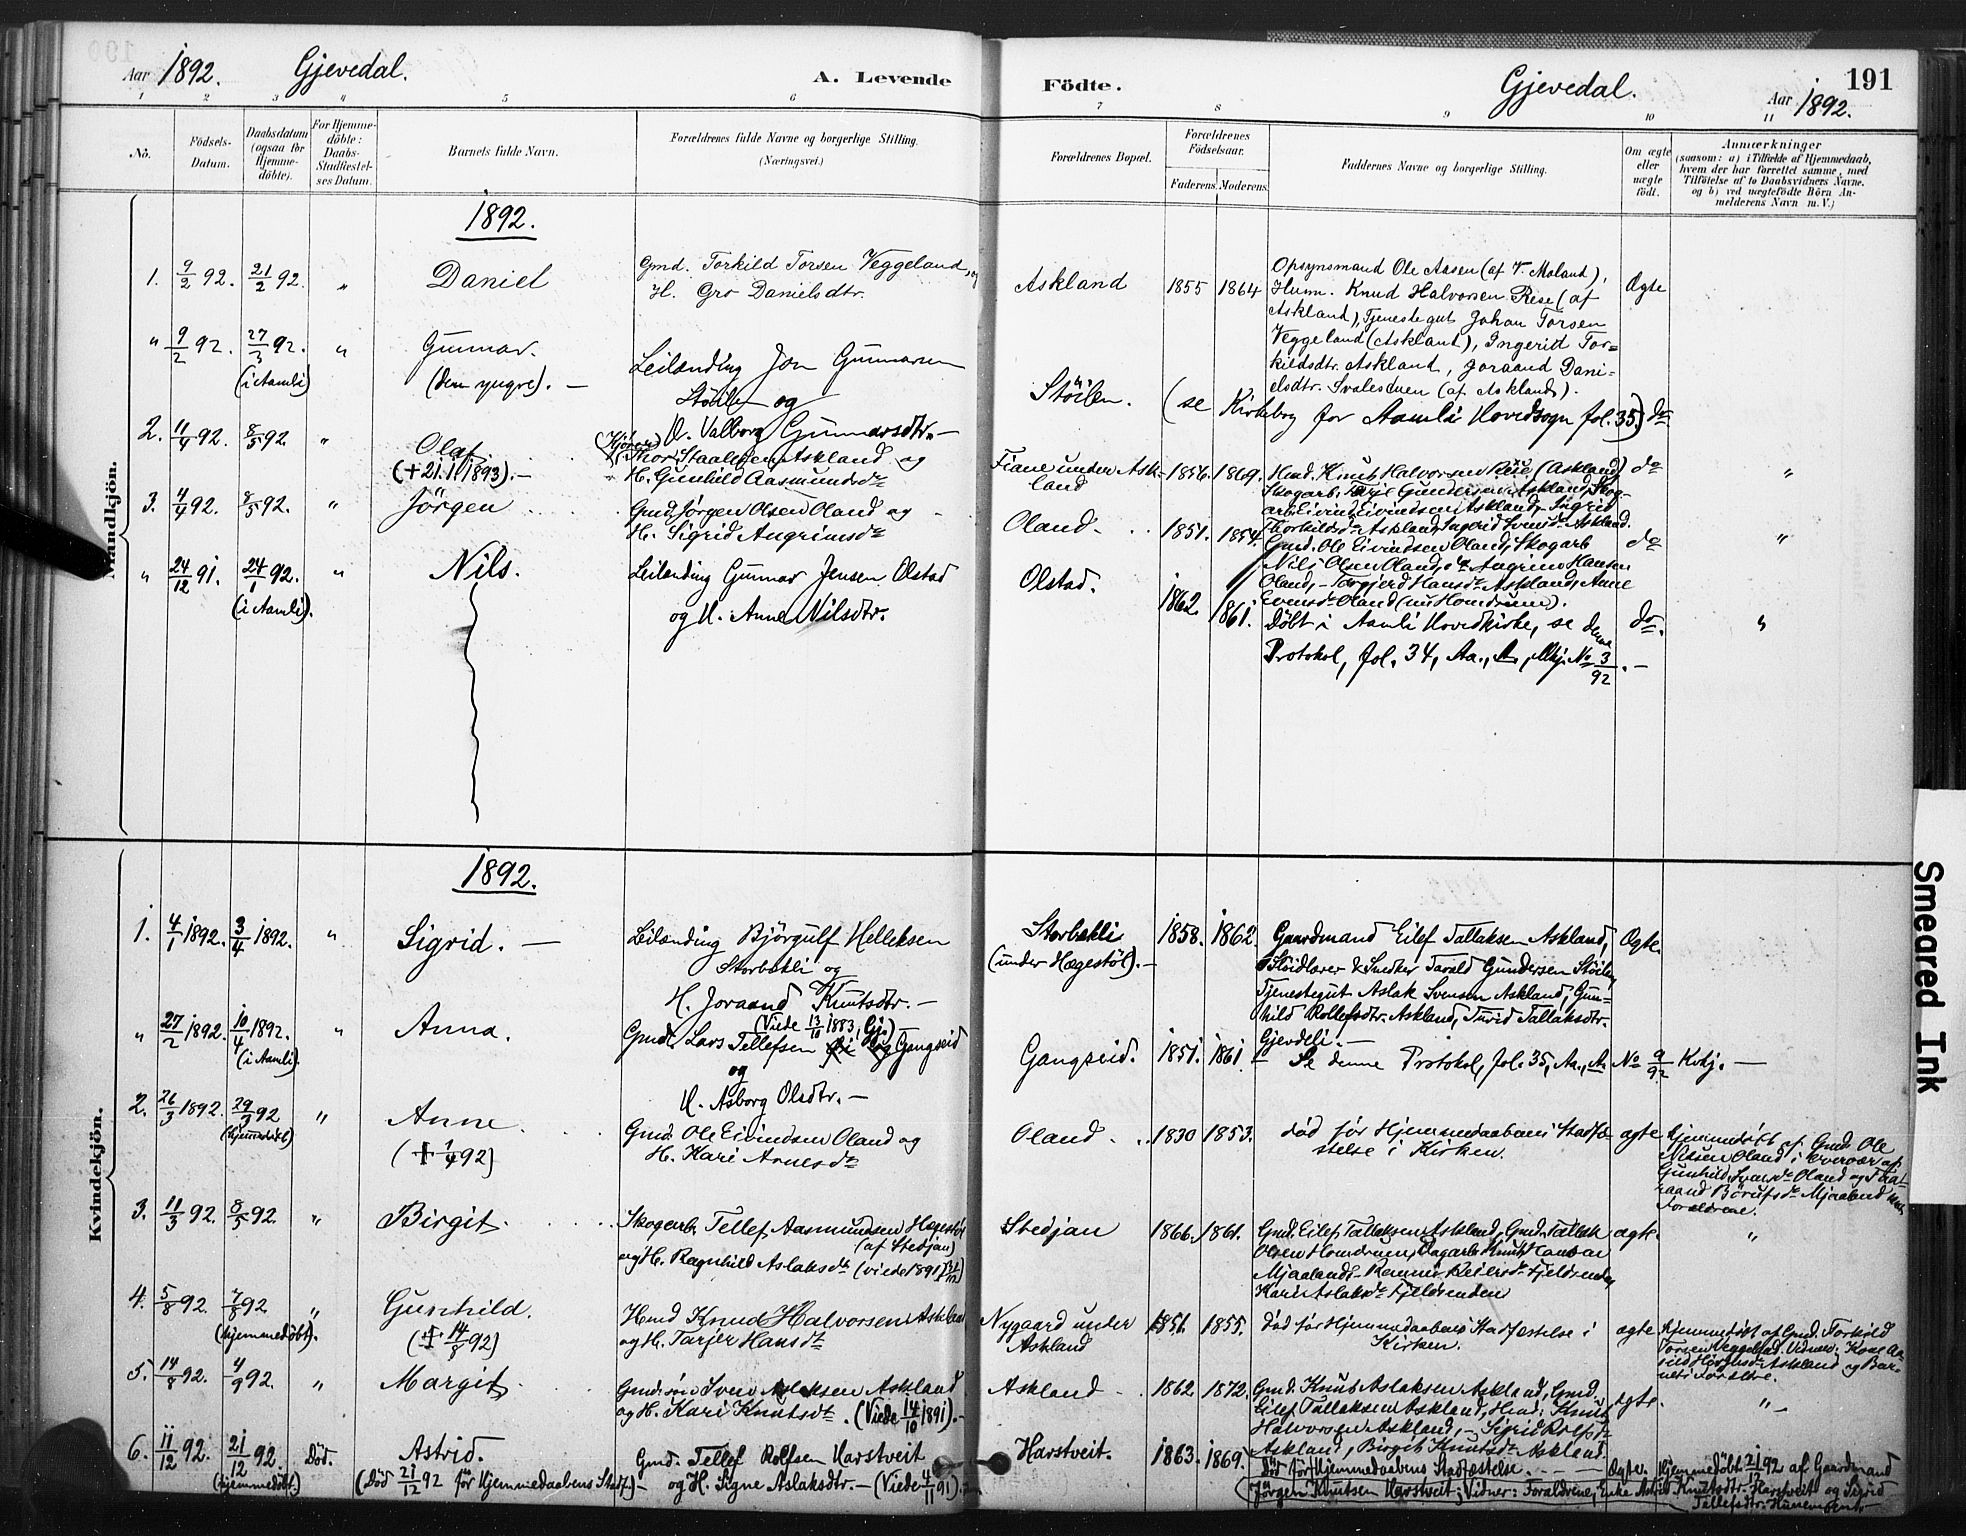 Aar 1892. Gjevedal. A. Levende Födte. Gjevedal. Aar 1892. 191
1 2 3 4 5 6 7 8 9 10 11
No.
Födsels-
Datum.
Daabsdatum
(ogsaa for
Hjemme-
döbte).
For Hjemme-
döbte:
Daabs-
Stadfæstel-
ses Datum.
Barnets fulde Navn.
Forældrenes fulde Navne og borgerlige Stilling.
(Næringsvei.)
Forældrenes Bopæl.
Forældrenes
Födselsaar.
Faderens. Moderens.
Faddernes Navne og borgerlige Stilling.
Om ægte
eller
uægte
födt.
Anmærkninger
(saasom: a) i Tilfælde af Hjemmedaab,
hvem der har forrettet samme, med
Tilföielse af to Daabsvidners Navne,
og b) ved uægtefödte Börn An-
melderens Navn m. V.)
Mandkjön.
1892.
1. 9/2 92. 21/2 92. " Daniel
Gmd. Torkild Torsen Veggeland, og
H. Gro Danielsdtr.
Askland 1855 1864
Opsynsmand Ole Aasen (af V. Moland),
Husm. Knud Halvorsen Rese (af
Askland), Tjenestegut Johan Torsen
Veggeland (Askland), Ingerid Tor-
kildsdtr. Askland, Joraand Dani-
elsdtr. Svalestuen (af Askland).
Ægte
" 9/2 92. 27/3 92. (i Aamli) " Gunnar.
(den yngre). —
Leilænding Jon Gunnarsen
Stöilen og
H. Valborg Gunnarsdtr. —
Stöilen. (se Kirkebog for Aamli Hovedsogn fol. 35.) do
2. 11/4 92. 8/5 92. " Olaf
(+ 21.1.1893). —
Thor Staalesen Askland og
H. Gunhild Aasmundsdr
Fiane under Ask-
land 1856. 1869.
Hmd. Knut Halvorsen Rese (Askland)
Skogarb. Tarje Gundersen Askland, Skog-
arb. Eivind Eivindsen Askland, Ingrid
Thorkildsdr Askland, Ingerid Svensdr Askland.
do "
3. 4/4 92. 8/5 92. " Jörgen
Gmd. Jörgen Olsen Oland og
H. Sigrid Angrimsdr
Oland. 1851. 1854.
Gmd. Ole Eivindsen Oland, Skogarb
Nils Olsen Oland, Angrim Hansen
Oland, — Torgjerd Hansdr Askland, Anne
Evensdr Oland (nu Homdrum).
do "
" 24/12 91. 24/1 92. (i Aamli). " Nils.
Leilænding Gunnar Jensen Olstad
og H. Anne Nilsdtr.
Olstad. 1862. 1861.
Döbt i Aamli Hovedkirke, se denne
Protokol, fol. 34, Aa., A, Mkj. No 3/92. —
do. "
Kvindekjön.
1892.
1. 4/1 1892. 3/4 1892. " Sigrid. —
Leilænding Björgulf Helleksen
Storbækli og
H. Joraand Knutsdtr. —
(Viede 13/10 1883, Gj.)
Storbækli
(under Hægestöl). — 1858. 1862.
Gaardmand Eilef Tallaksen Askland,
& Snedker Tarald Gundersen Stöilen,
Tjenestegut Aslak Svensen Askland, Gun-
hild Rollefsdtr. Askland, Turid Tallaksdtr.
Gjevdeli. —
Ægte.
" 27/2 1892. 10/4 1892. (i Aamli). " Anna.
Gmd. Lars Tellefsen Gangseid
og
H. Asborg Olsdtr. —
Gangseid. 1851. 1861.
— Se denne Protokol, fol. 35, Aa., A. No 9/92 Kvkj. —
2. 26/3 1892. 29/3 92 (hjemmedöbt) " Anne
(+ 1/4 92)
Gmd. Ole Eivindsen Oland og
H. Kari Arnesdr
Oland 1830 1853.
död för Hjemmedaabens Stadfæ-
stelse i Kirken.
ægte
Hjemmedöbt af Gmd. Ole
Nilsen Oland i Overvær af
Gunhild Svensdr Oland og
Mjaaland
Forældrene.
3. 11/3 92. 8/5 92. " Birgit.
Skogarb. Tellef Aasmundsen Hægestöl
(af Stedjan)
og H. Ragnhild Aslaksdr (viede 1891)
Stedjan 1866. 1861.
Gmd. Eilef Tallaksen Askland, Gmd. Tallak
Olsen Homdrum, Dagarb. Knut
Mjaaland,
Kari Aslaksdr
ægte. "
4. 5/8 92. 7/8 92 (hjemmedöbt). " Gunhild.
(+ 14/8 92)
Hmd Knud Halvorsen Askland
og H. Tarjer Hansdr
Nygaard under
Askland 1851. 1855.
död för Hjemmedaabens Stadfæstelse i
Kirken.
ægte
Hjemmedöbt af Gmd. Torkild
Torsen Veggeland. Vidner: Kone
Askland og Bar-
nets Forældre.
5. 14/8 92. 4/9 92. " Margit
Gmd. sön Sven Aslaksen Askland
og H. Kari Knutsdr. (Viede 14/10 1891). —
Askland 1862. 1872.
Gmd. Knut Aslaksen Askland, Gmd.
Eilef Tallaksen Askland, Hmd. Knut
Halvorsen Askland, — Sigrid Rolfsdr
Askland, Birgit Knutsdr Askland.
ægte. "
6. 11/12 92. 21/12 92. (hjemmedöbt.) Död. Astrid.
(Död 21/12 92 för Hjemmedaabens Stadf.) —
Gmd. Tellef Rolfsen Harstveit
og H. Signe Aslaksdtr. — (Viede 4/11 91).
Harstveit. 1863. 1869.
Död för Hjemmedaabens Stadfæstelse. — Ægte.
Hjemmedöbt 21/12 92 af Gaardmand
Jörgen Knutsen Harstveit; Vidner: Forældrene, Enke Astrid Knutsdtr. Harstveit og Sigrid
Tellefsdtr.
Smeared Ink